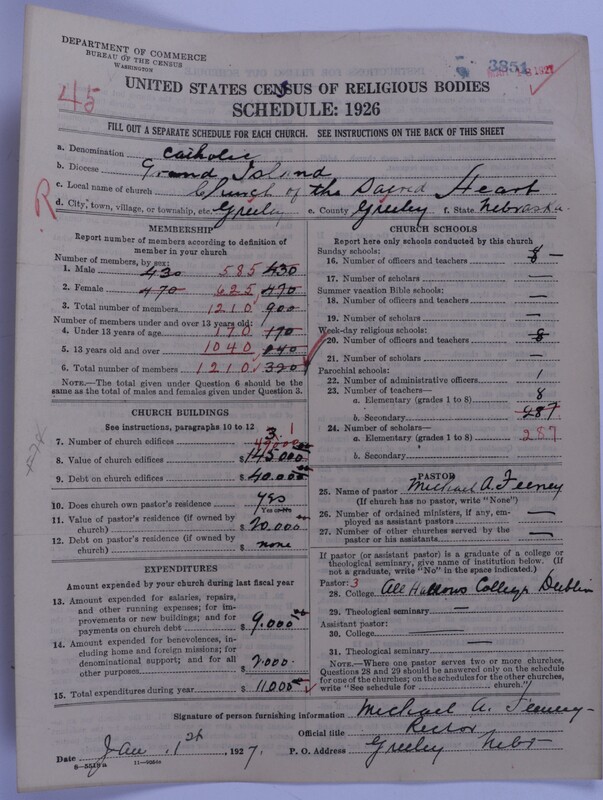 DEPARTMENT OF COMMERCE
BUREAU OF THE CENSUS
WASHINGTON
3851
1927
45
UNITED STATES CENSUS OF RELIGIOUS BODIES
SCHEDULE: 1926
FILL OUT A SEPARATE SCHEDULE FOR EACH CHURCH. SEE INSTRUCTIONS ON THE BACK OF THIS SHEET
a. Denomination Catholic
b. Diocese Grand Island
c. Local name of church Church of the Sacred Heart
R
d. City, town, village, or township, etc. Greeley e. County Greeley f. State Nebraska
MEMBERSHIP
Report number of members according to definition of member in your church
Number of members, by sex:
1. Male 430 585 430
2. Female 470 625 470
3. Total number of members 1210 900
Number of members under and over 13 years old:
4. Under 13 years of age 170 170
5. 13 years old and over 1040
6. Total number of members 1210
NOTE.—The total given under Question 6 should be the same as the total of males and females given under Question 3.
CHURCH BUILDINGS
See instructions, paragraphs 10 to 12
7. Number of church edifices 3 1
8. Value of church edifices $145.000
9. Debt on church edifices $40.000
10. Does church own pastor's residence? yes
Yes or No
11. Value of pastor's residence (if owned by church) $20.000
12. Debt on pastor's residence (if owned by church) $none
EXPENDITURES
Amount expended by your church during last fiscal year
13. Amount expended for salaries, repairs, and other running expenses; for improvements or new buildings; and for payments on church debt $9.000
14. Amount expended for benevolences, including home and foreign missions; for denominational support; and for all other purposes $2.000
15. Total expenditures during year $11.000
CHURCH SCHOOLS
Report here only schools conducted by this church
Sunday schools:
16. Number of officers and teachers 8 —
17. Number of scholars —
Summer vacation Bible schools:
18. Number of officers and teachers —
19. Number of scholars —
Week-day religious schools:
20. Number of officers and teachers 8
21. Number of scholars —
Parochial schools:
22. Number of administrative officers 1
23. Number of teachers—
a. Elementary (grades 1 to 8) 8
b. Secondary 287
24. Number of scholars—
a. Elementary (grades 1 to 8) 287
b. Secondary
PASTOR
25. Name of pastor Michael A. Feeney
(If church has no pastor, write "None")
26. Number of ordained ministers, if any, employed as assistant pastors —
27. Number of other churches served by the pastor or his assistants —
If pastor (or assistant pastor) is a graduate of a college or theological seminary, give name of institution below. (If not a graduate, write "No" in the space indicated.)
Pastor: 3
28. College All Hallows College Dublin
29. Theological seminary —
Assistant pastor:
30. College —
31. Theological seminary —
NOTE.—Where one pastor serves two or more churches, Questions 28 and 29 should be answered only on the schedule for one of the churches; on the schedules for the other churches, write "See schedule for church."
Signature of person furnishing information Michael A. Feeney
Official title Rector
Date Jan. 1st, 1927. P. O. Address Greeley Nebr